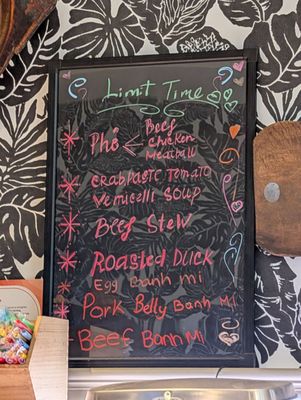 Limit Time
Beef
Phở < Chicken
Meatball
CRAB PASTE TOMATO
Vermicelli SOUP
Beef Stew
Roasted DUCK
Egg Banh mi
Pork Belly Banh Mi
Beef Banh Mi